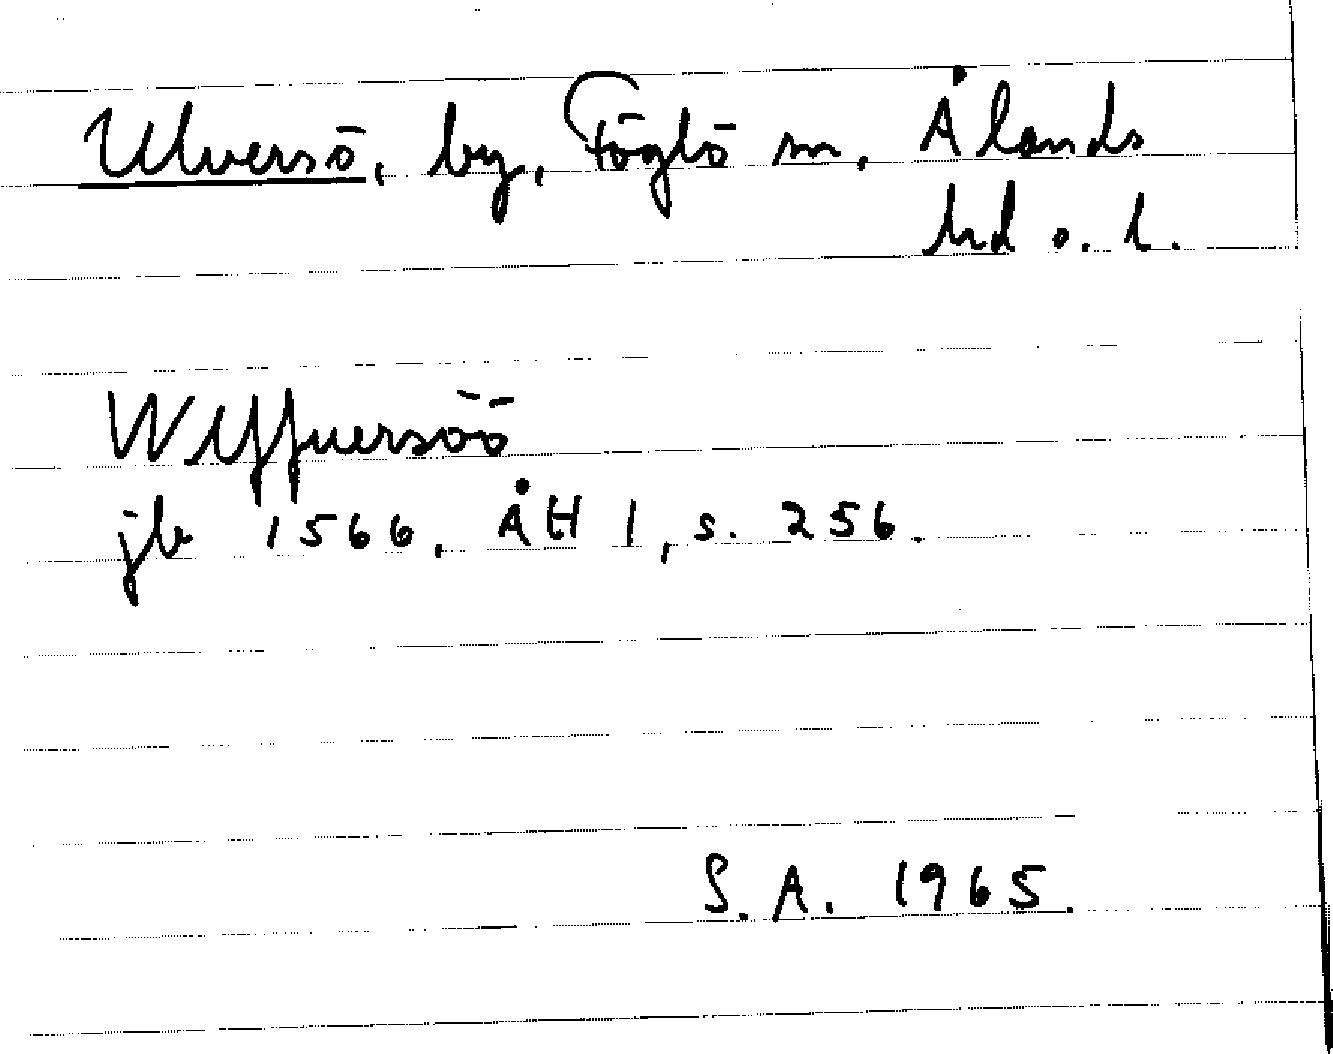 Ulversö, by, Föglö sn, Ålands
hd o. l.
Wlffuersöö
jb 1566, ÅH 1, s. 256.
S.A. 1965.